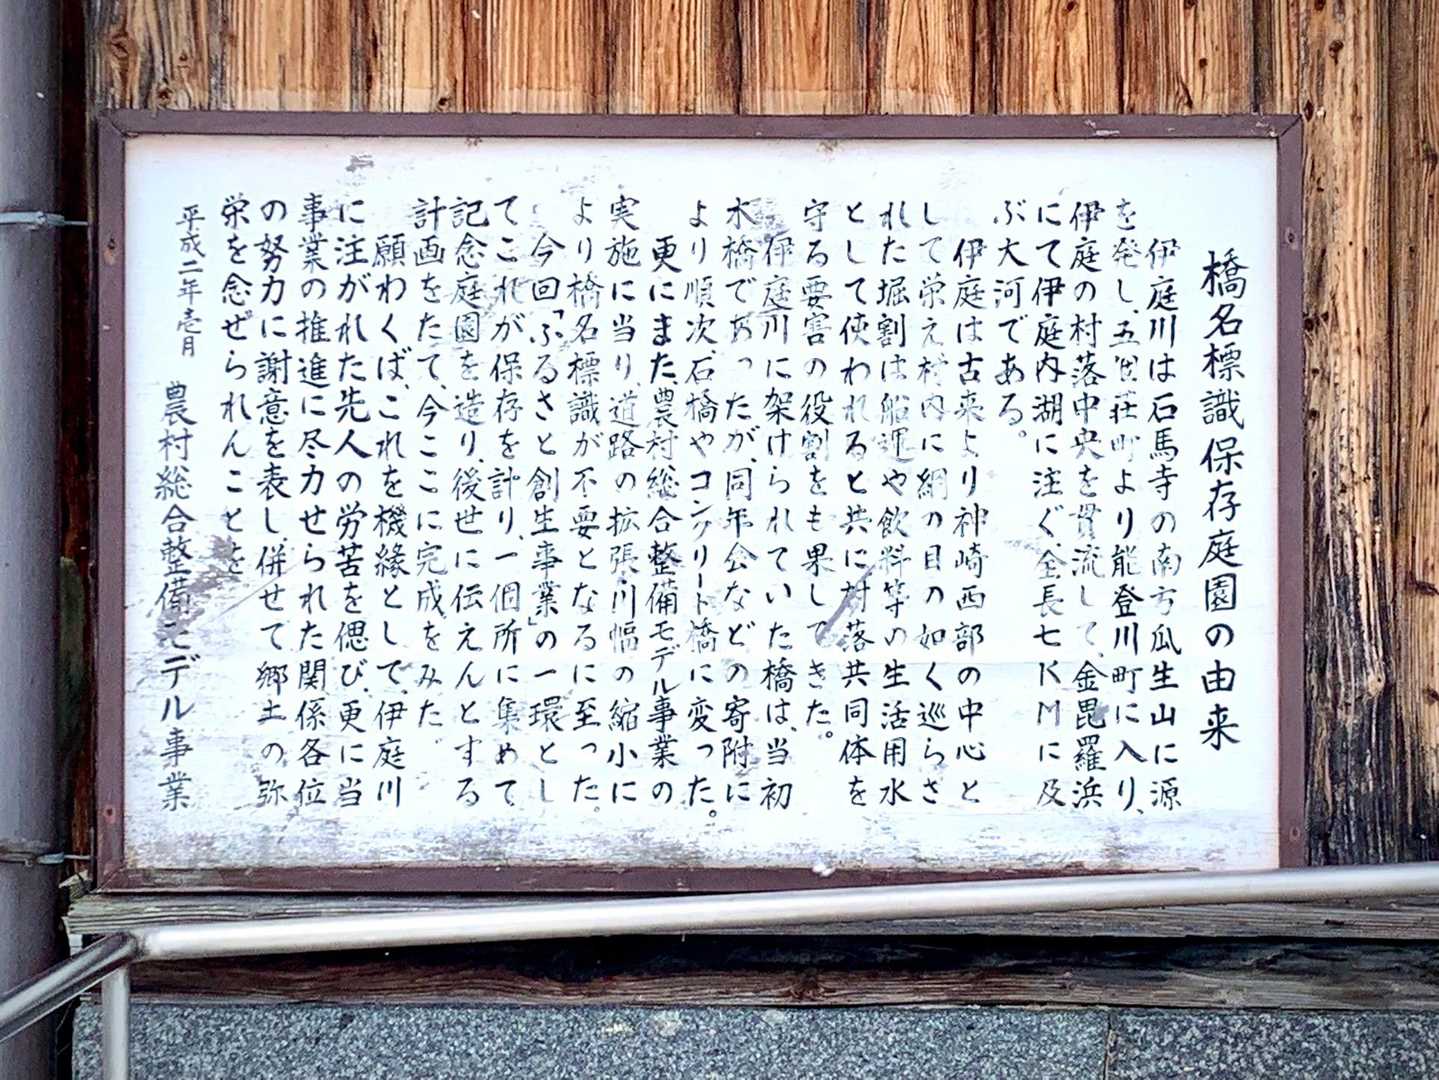 橋名標識保存庭園の由来
伊庭川は石馬寺の南方瓜生山に源
を発し、五個荘町より能登川町に入り、
伊庭の村落中央を貫流して、金毘羅浜
にて伊庭内湖に注ぐ、全長七KMに及
ぶ大河である。
伊庭は古来より神崎西部の中心と
して栄え村内に網の目の如く巡らさ
れた堀割は船運や飲料等の生活用水
として使われると共に村落共同体を
守る要害の役割をも果してきた。
伊庭川に架けられていた橋は、当初
木橋であったが、同年会などの寄附に
より順次、石橋やコンクリート橋に変った。
更にまた、農村総合整備モデル事業の
実施に当り、道路の拡張・川幅の縮小に
より橋名標識が不要となるに至った。
今回「ふるさと創生事業」の一環とし
てこれが保存を計り、一個所に集めて
記念庭園を造り、後世に伝えんとする
計画をたて、今ここに完成をみた。
願わくば、これを機縁として、伊庭川
に注がれた先人の労苦を偲び、更に当
事業の推進に尽力せられた関係各位
の努力に謝意を表し、併せて郷土の弥
栄を念ぜられんことを
平成二年壱月
農村総合整備モデル事業